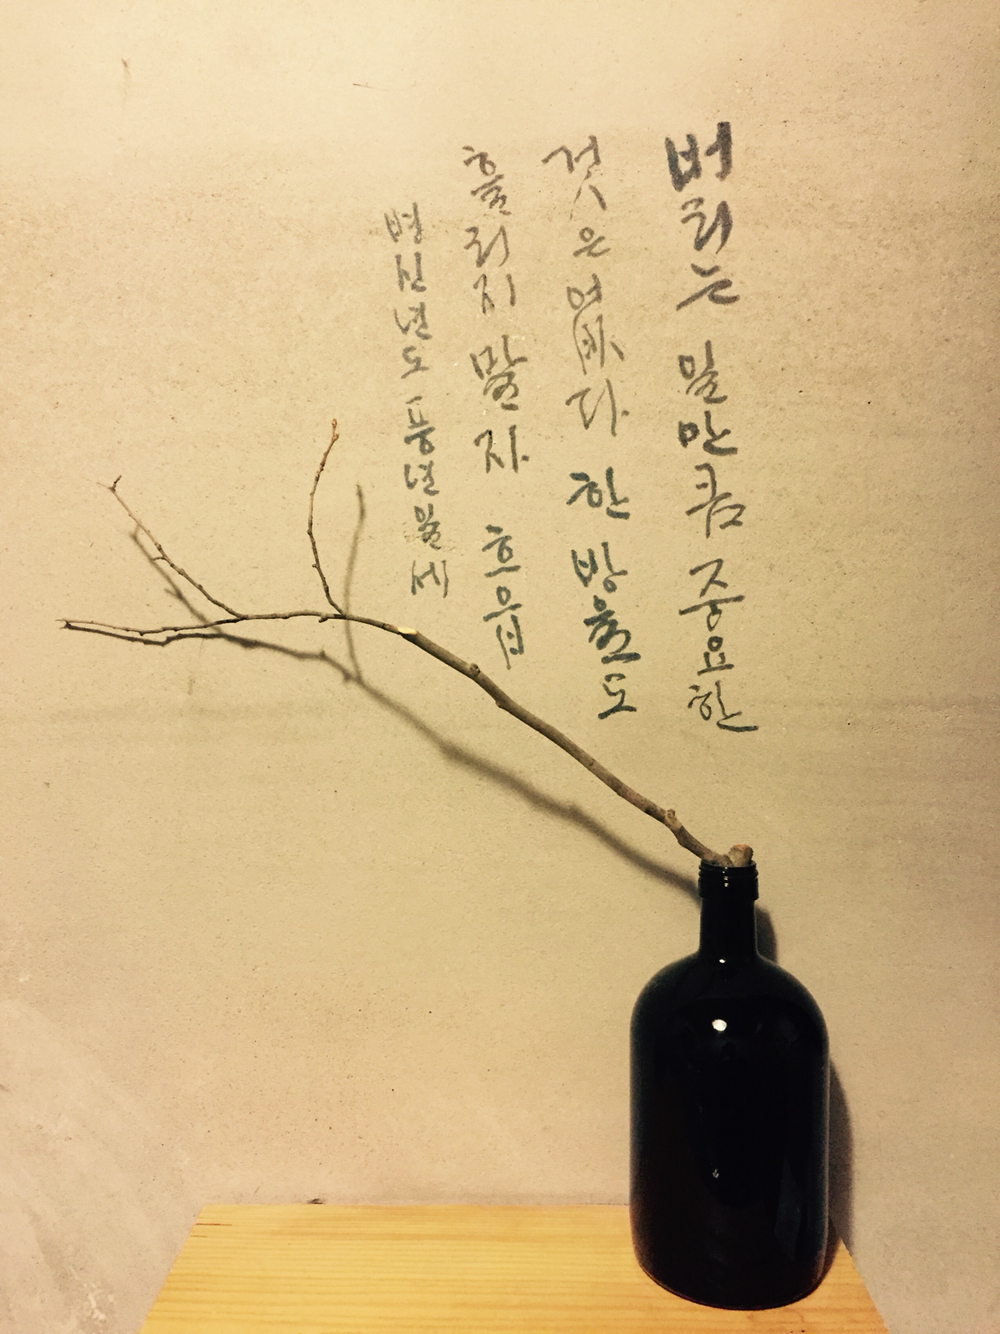 버리는 일만큼 중요한
것은 없다 한 방울도
흘리지 말자 흐으읍
병신년도 풍년일세